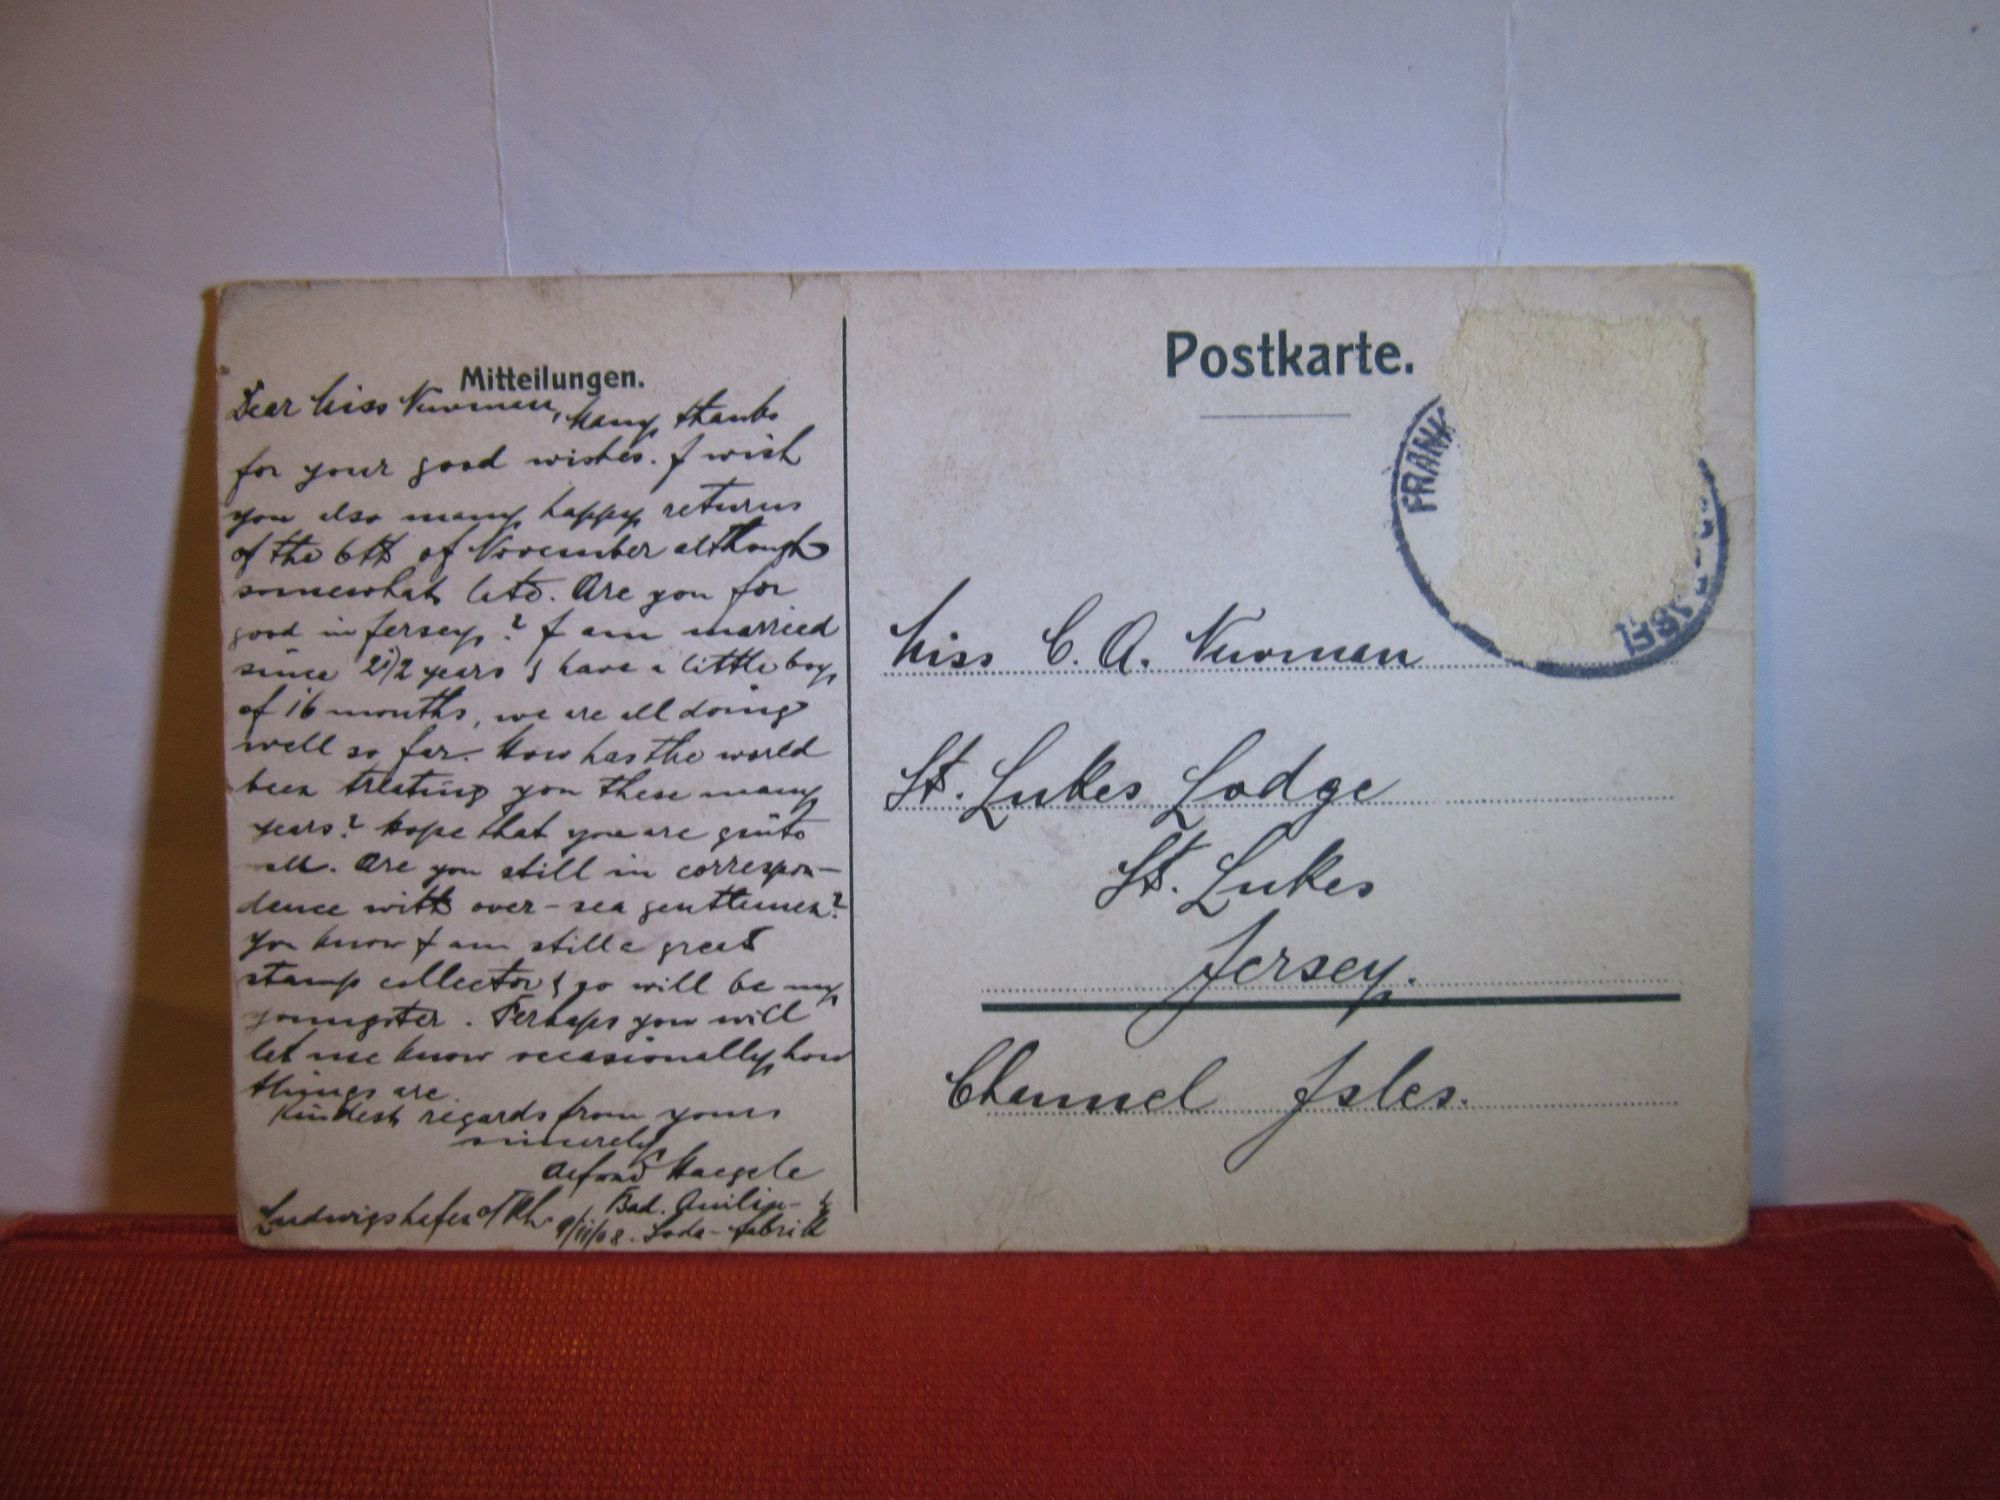 Mitteilungen.
Dear Miss Newman, Many thanks
for your good wishes. I wish
you also many happy returns
of the 6th of November although
somewhat late. Are you for
good in Jersey? I am married
since 2 1/2 years & have a little boy
of 16 months, we are all doing
well so far. How has the world
been treating you these many
years? Hope that you are quite
well. Are you still in correspon-
dence with over-sea gentlemen?
You know I am still a great
stamp collector & so will be my
youngster. Perhaps you will
let me know occasionally, how
things are.
Kindest regards from yours
sincerely
Alfred Haegele
Bad. Anilin- &
Ludwigshafen a/Rh. 9/11/08. Soda-fabrik
Postkarte.
FRANK
Miss C. A. Newman
St. Lukes Lodge
St. Lukes
Jersey.
Channel Isles.